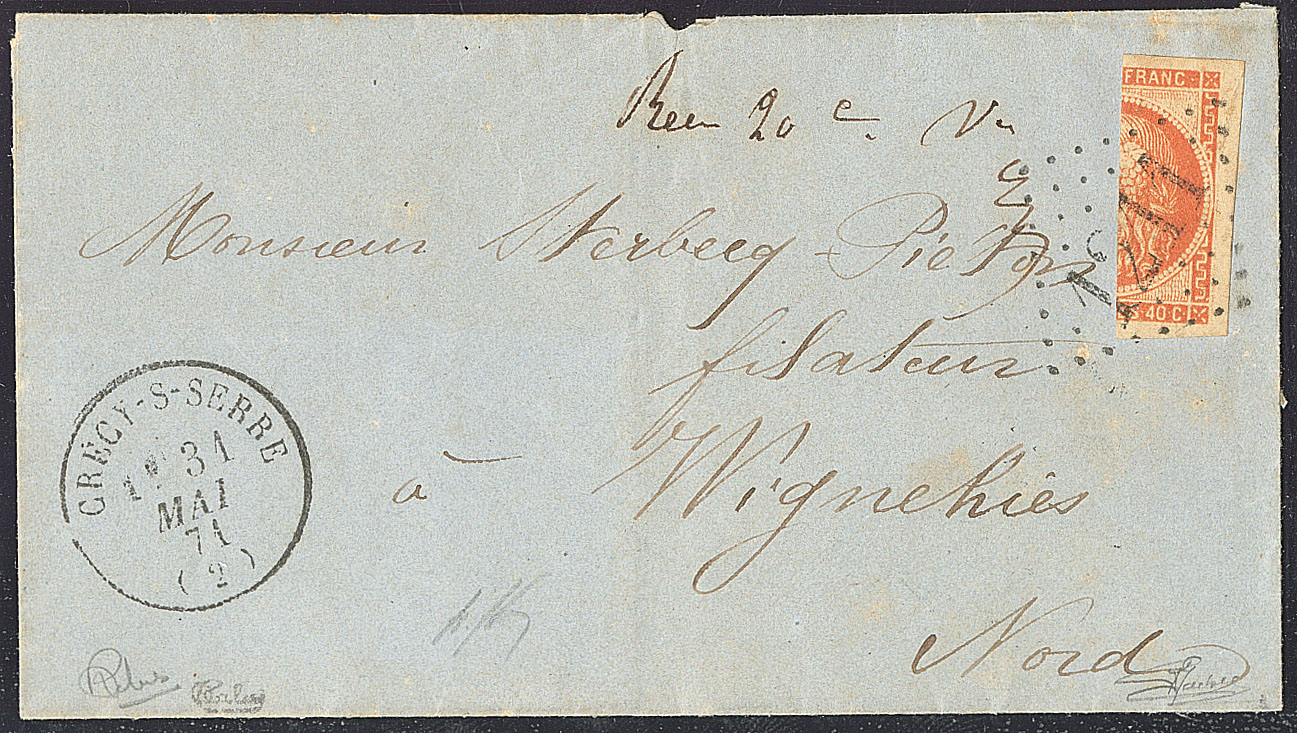 FRANC
20 c.
Monsieur Sterbecq-Piéton
40 C
filateur
à
Wignehies
Nord
CRÉCY-S-SERRE
1e 31
MAI
71
(2)